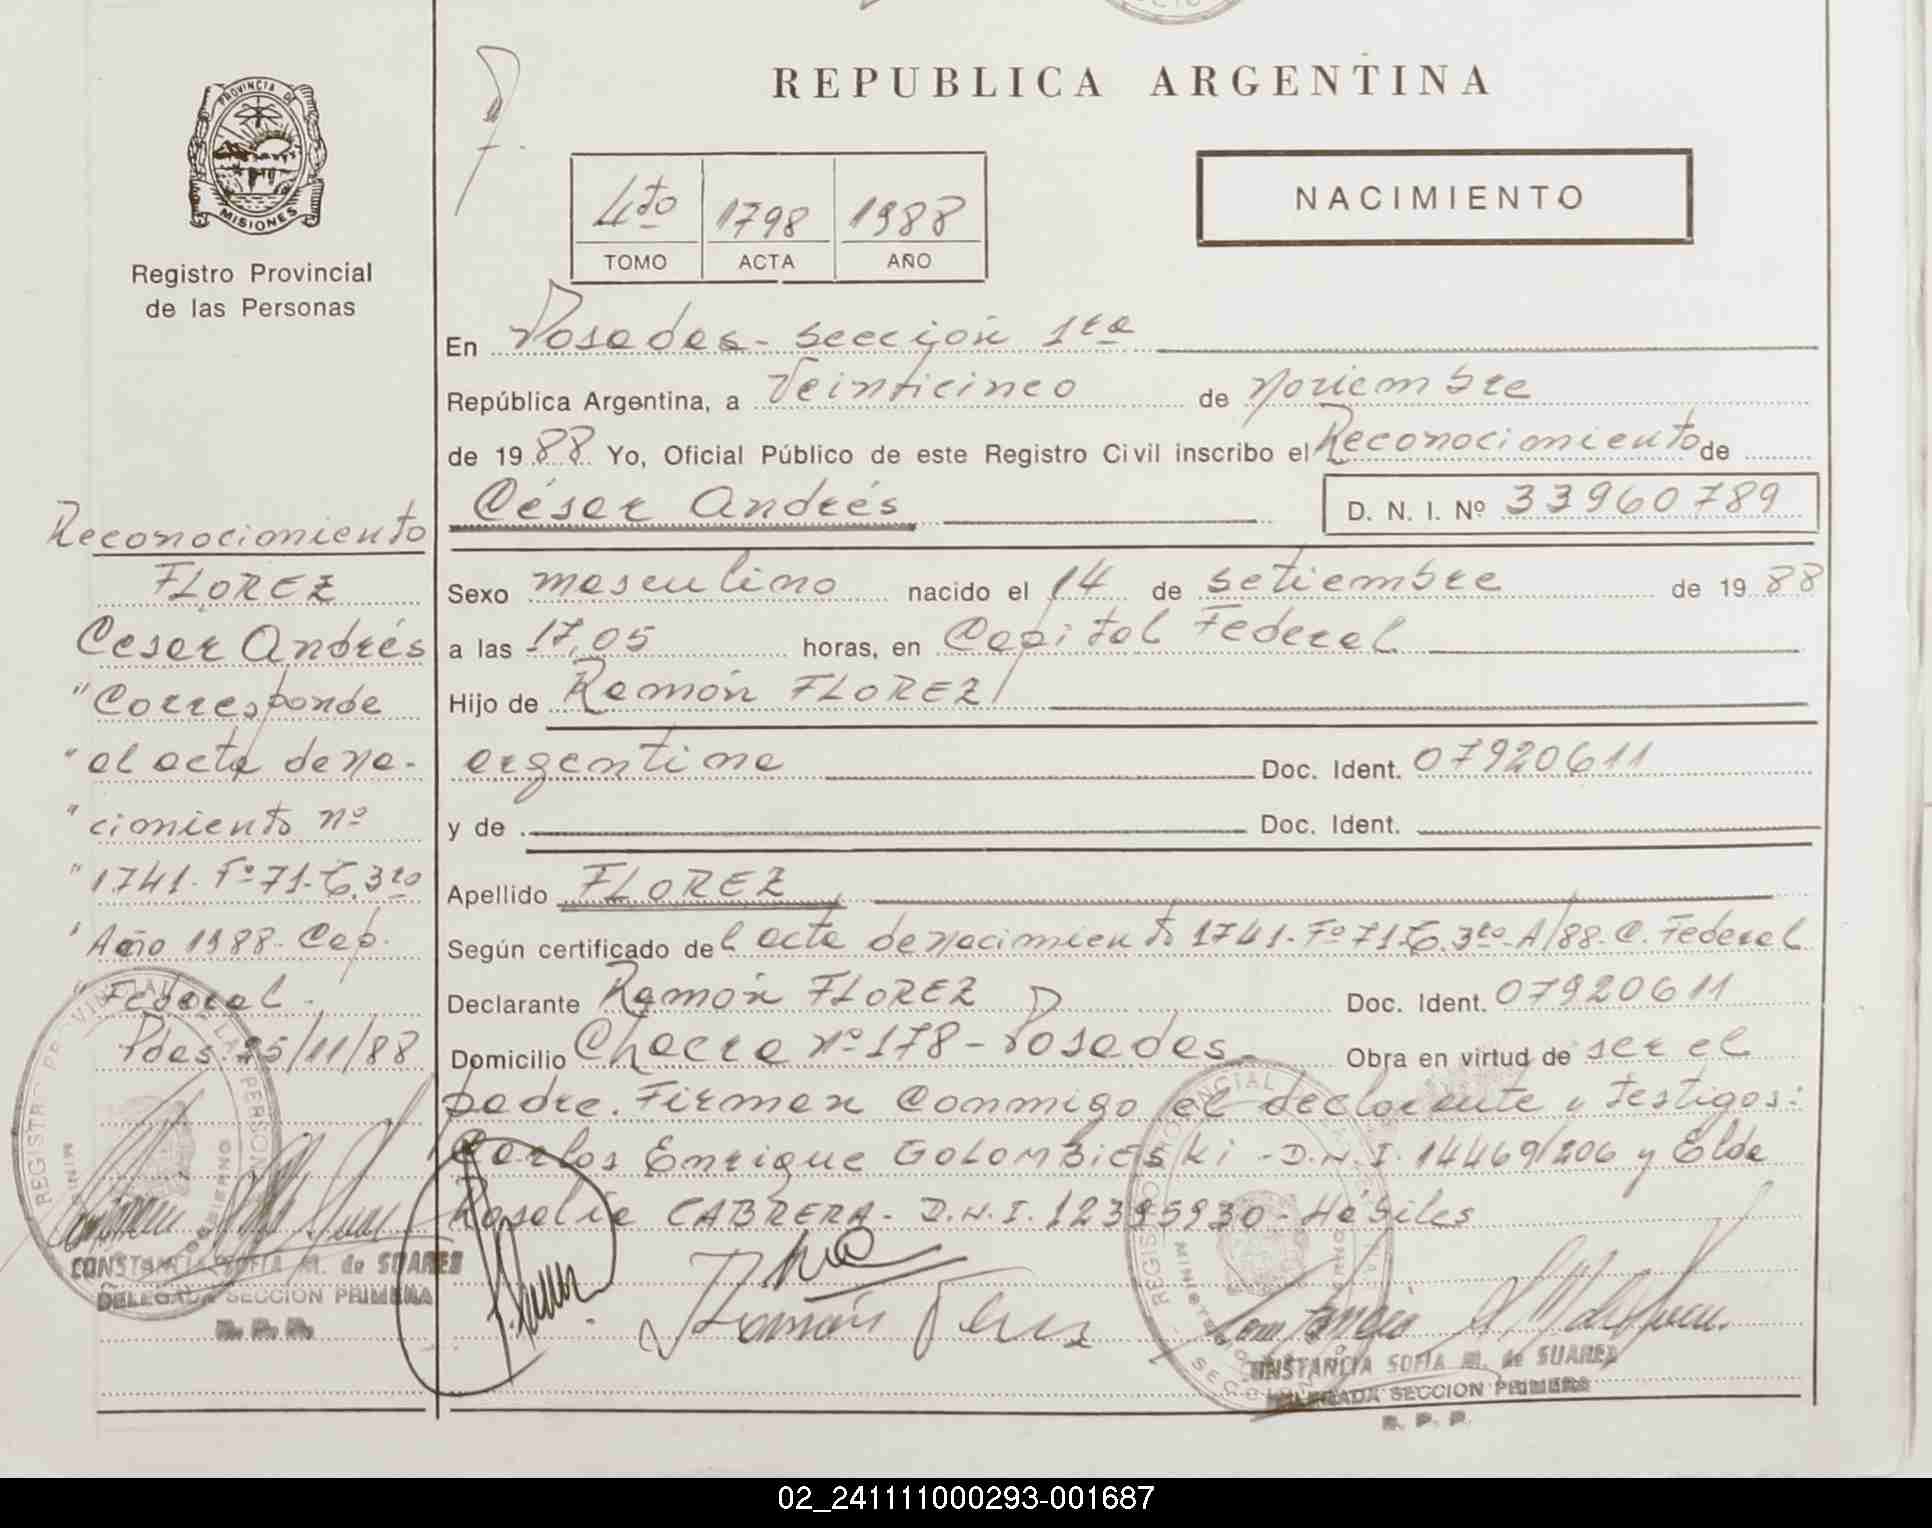 REPUBLICA ARGENTINA
PROVINCIA DE
MISIONES
Registro Provincial
de las Personas
4to 1798 1988
TOMO ACTA AÑO
NACIMIENTO
En Posadas - sección 1ra
República Argentina, a Veinticinco de noviembre
de 1988 Yo, Oficial Público de este Registro Civil inscribo el Reconocimiento de
César Andrés D. N. I. Nº 33960789
Sexo masculino nacido el 14 de setiembre de 1988
a las 17,05 horas, en Capital Federal
Hijo de Ramón FLOREZ
argentina Doc. Ident. 07920611
y de Doc. Ident.
Apellido FLOREZ
Según certificado del acta de nacimiento 1741-Fº71-T.3ro-A/88-C. Federal
Declarante Ramón FLOREZ Doc. Ident. 07920611
Domicilio Chacra nº 178 - Posadas Obra en virtud de ser el
padre. Firman conmigo el declarante y testigos:
Carlos Enrique GOLOMBIESKI - D.N.I. 14469206 y Elda
Rosalia CABRERA - D.N.I. 12395930 - Hábiles
Reconocimiento
FLOREZ
César Andrés
"Corresponde
"al acta de na-
"cimiento nº
"1741-Fº71-T.3ro
"Año 1988-Cap.
"Federal.
Pdas. 25/11/88
CONSTANCIA SOFIA M. de SUAREZ
DELEGADA SECCION PRIMERA
R. P. P.
Ramón
CONSTANCIA SOFIA M. de SUAREZ
DELEGADA SECCION PRIMERA
R. P. P.
02_241111000293-001687